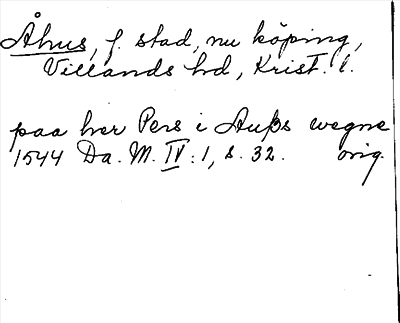 Åhus, f. stad, nu köping,
Villands hd, Krist. l.
paa her Pers i Auþs wegne
1544 Da. M. IV: 1, s. 32. orig.